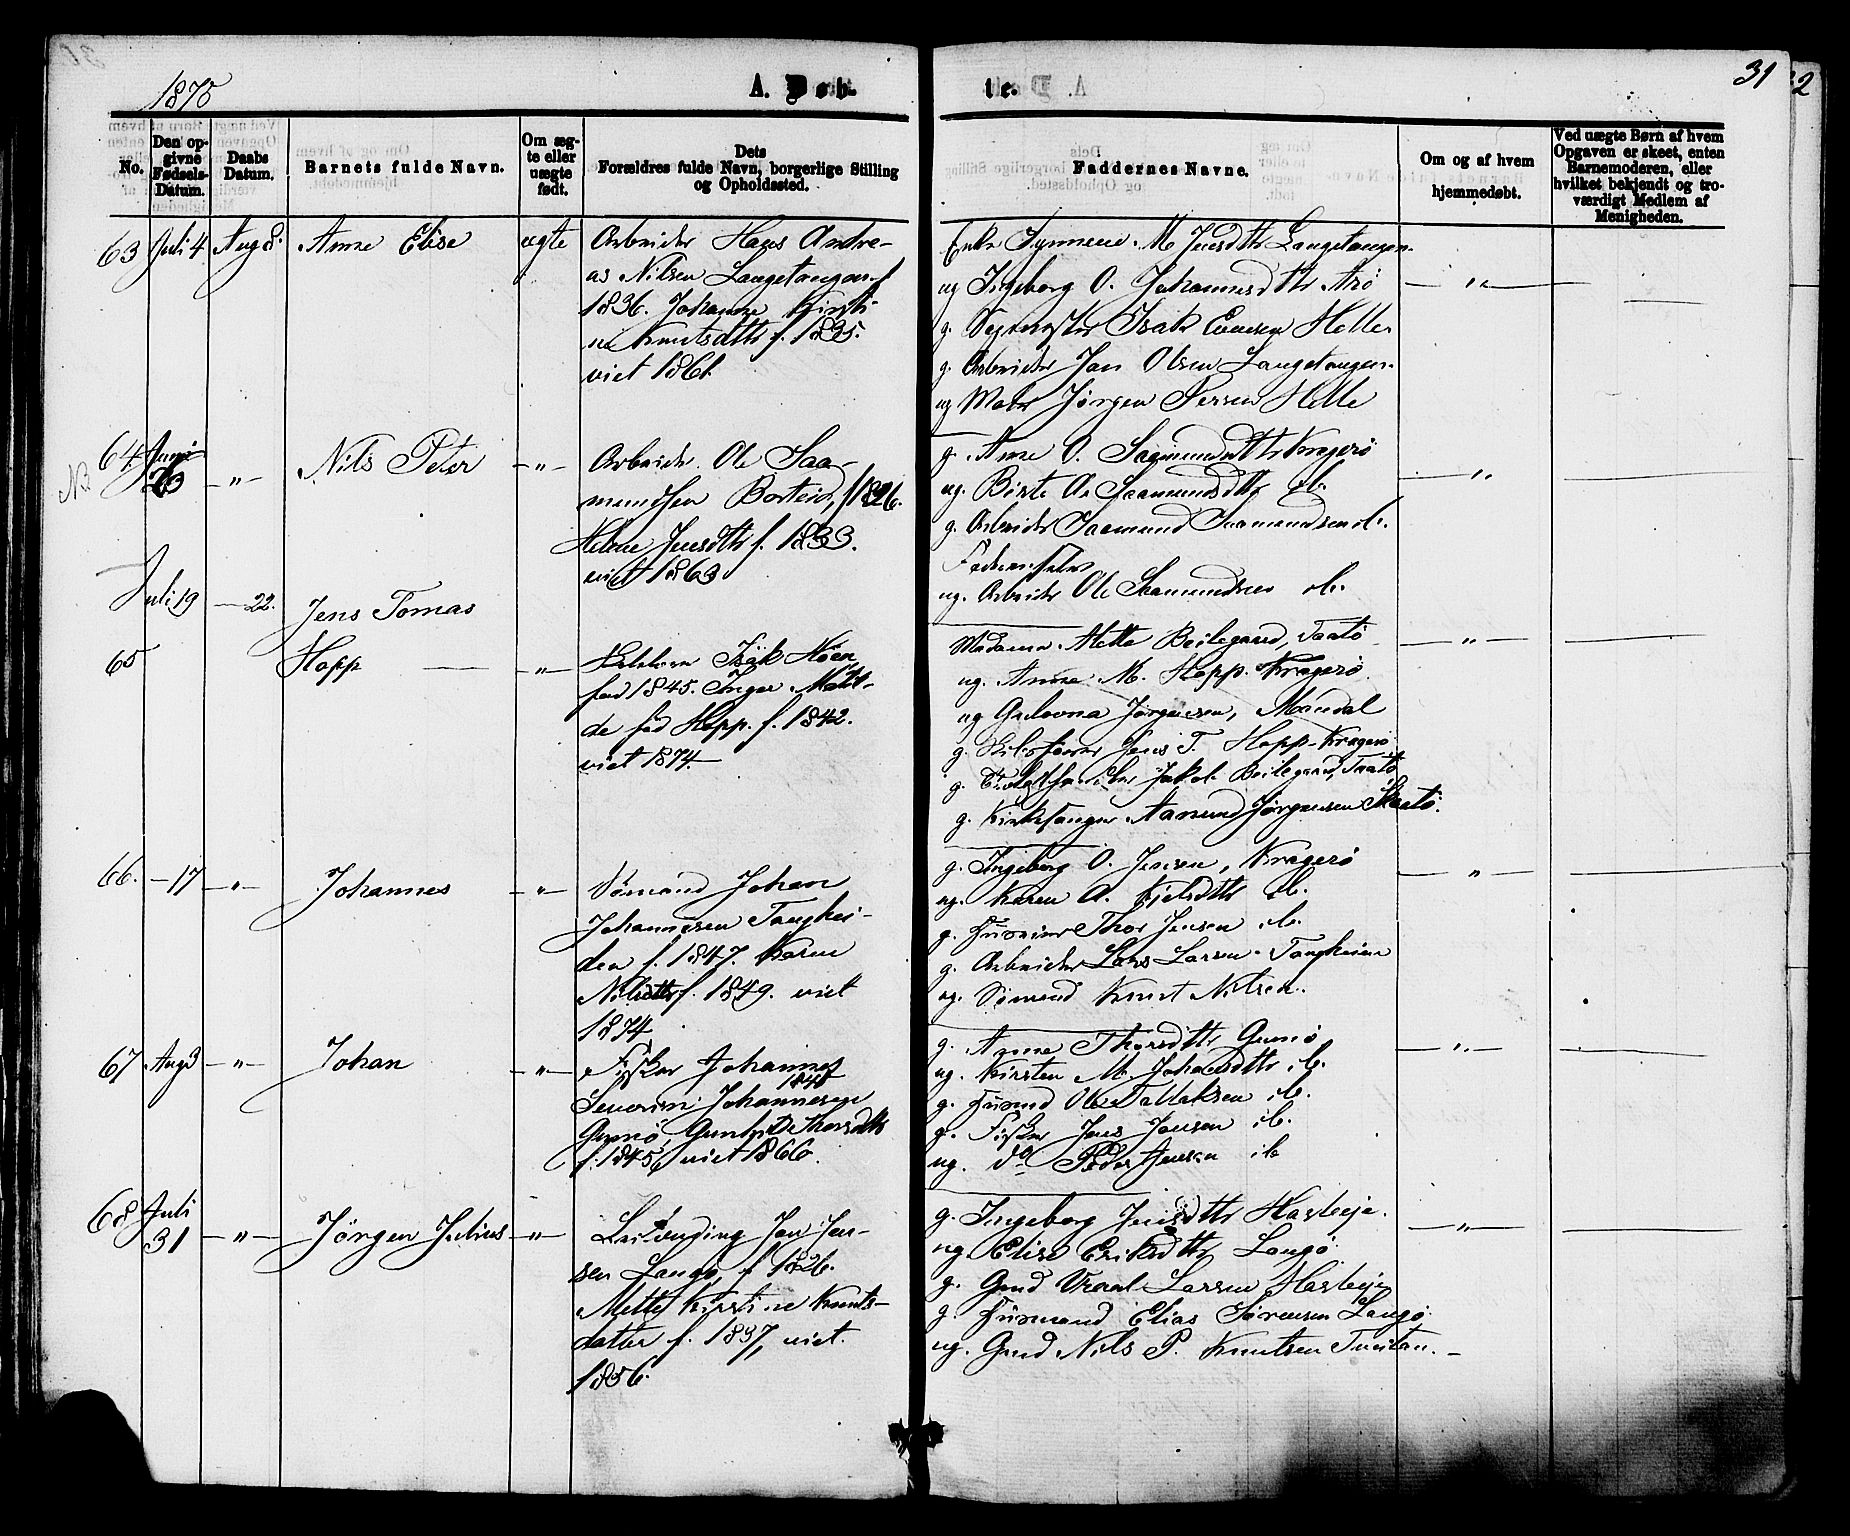 1875
A. Døbte.
31
2
No.
Den opgivne Fødsels-Datum.
Daabs Datum.
Barnets fulde Navn.
Om ægte eller uægte født.
Dets Forældres fulde Navn, borgerlige Stilling og Opholdssted.
Faddernes Navne.
Om og af hvem hjemmedøbt.
Ved uægte Børn af hvem Opgaven er skeet, enten Barnemoderen, eller hvilket bekjendt og troværdigt Medlem af Menigheden.
63 Juli 4 Aug 8. Anne Elise ægte
Arbeider Hans Andre-
as Nilsen Langetangen f.
1836. Johanne Kirsti-
ne Knutsdttr f. 1835.
viet 1861.
Enke Synneve M. Jensdttr Langetangen.
ug Ingeborg O. Johannesdttr Arø
g. Isak Evensen Helle
g. Arbeider Jan Olsen Langetangen.
ug Jørgen Helle
— " —
64. Juni 26 — " — Nils Peter — " —
NB
Arbeider Ole Saa-
mundsen Borteid, f. 1826.
Helene Jensdttr f. 1833.
viet 1863
g. Anne O. Saamundsdttr Kragerø
ug. Birte As Saamundsdttr ib.
g. Arbeider Saamund Saamundsen ib.
Faderen selv
ug. Arbeider Ole Saamundsen ib.
— " —
Juli 19 — 22. Jens Tomas
65 Hopp — " —
Isak Nøen
fød 1845. Inger Matil-
de fød Hopp. f. 1842.
viet 1874.
Madame Mette Beilegaard, Taatø
ug. Anne M. Hopp. Kragerø
ug Gulovna Jørgensen, Mandal
g. Jens T. Hopp Kragerø
g. Jakob Beilegaard, Taatø
g. Kirkesanger Aanund Jørgensen Skaatø.
— " —
66. — 17 — " — Johannes — " —
Sømand Johan
Johannesen Tanghei-
den f. 1847. Karen
Nilsdttr f. 1849. viet
1874
g. Ingeborg O. Jensen, Kragerø
ug. Karen A. Kjelsdttr ib.
g. Thor Jensen ib.
g. Arbeider Lars Larsen Tangheien
ug. Sømand Knut Nilsen.
— " —
67 Aug 3 — " — Johan — " —
Fisker Johannes
Severin Johannesen
Gumø, Gunhild Thorsdttr
f. 1845, viet 1866.
g. Anne Thorsdttr Gumø
ug. Kirsten M. Johansdttr ib.
g. Husmd Ole Tallaksen ib.
g. Fisker Jens Jensen ib.
ug. do Peder Jensen ib
— " —
68 Juli 31 — " — Jørgen Julius — " —
Jan Jen-
sen Langø, f. 1826.
Mette Kirstine Knuts-
datter f. 1837, viet.
1856.
g. Ingeborg Jensdttr Hasleje.
ug. Elise Eriksdttr Langø
g. Gmd Vraal Larsen Hasleje
g. Husmand Elias Sørensen Langø
ug. Gmd Nils P. Knutsen Tveitan.
— " —